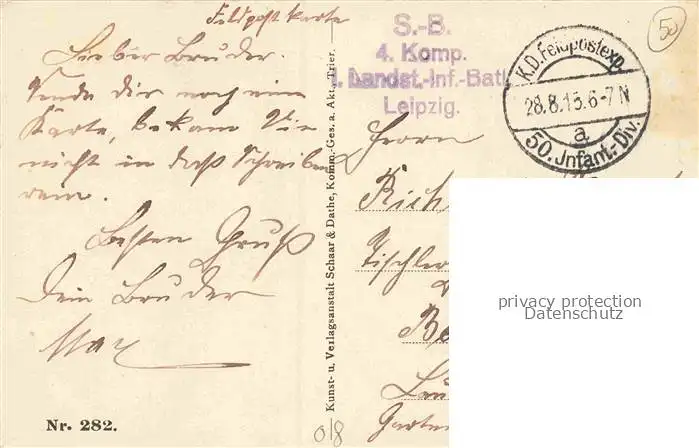 Feldpostkarte
Lieber Bruder.
Sende dir noch eine
Karte, bekam Sie
nicht in daß Schreiben
rein.
Besten Gruß
Dein Bruder
Max
Nr. 282.
Kunst- u. Verlagsanstalt Schaar & Dathe, Komm.-Ges. a. Akt., Trier.
S.-B.
4. Komp.
1. Landst.-Inf.-Batl.
Leipzig.
K.D. Feldpostexp.
28.8.15.6-7N
a
50. Infant.-Div.
50
Herrn
Rich
Tischler
privacy protection
Datenschutz
Garten
0/8